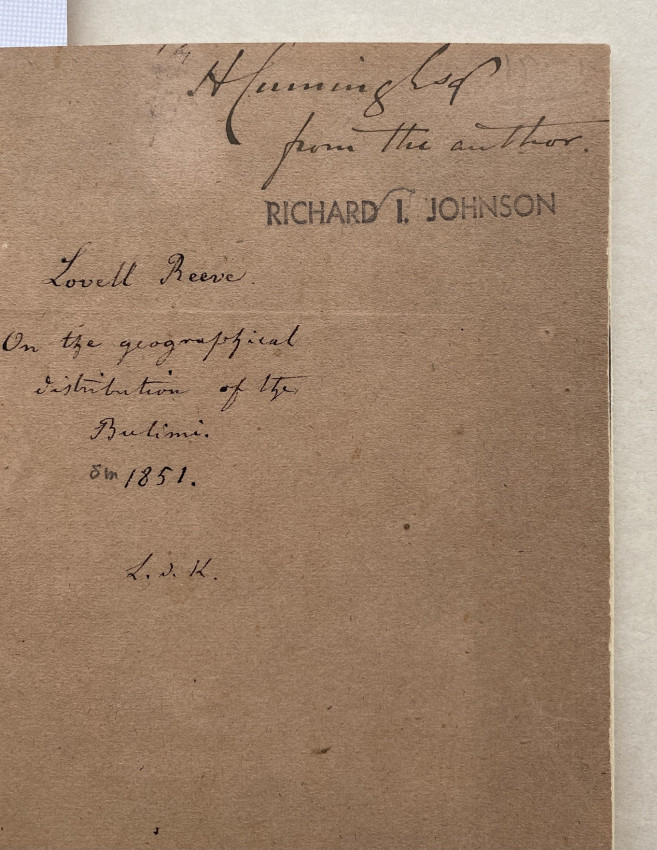 H Cuming Esq
from the author.
RICHARD I. JOHNSON
Lovell Reeve.
On the geographical
distribution of the
Bulimi.
1851.
L. d. K.